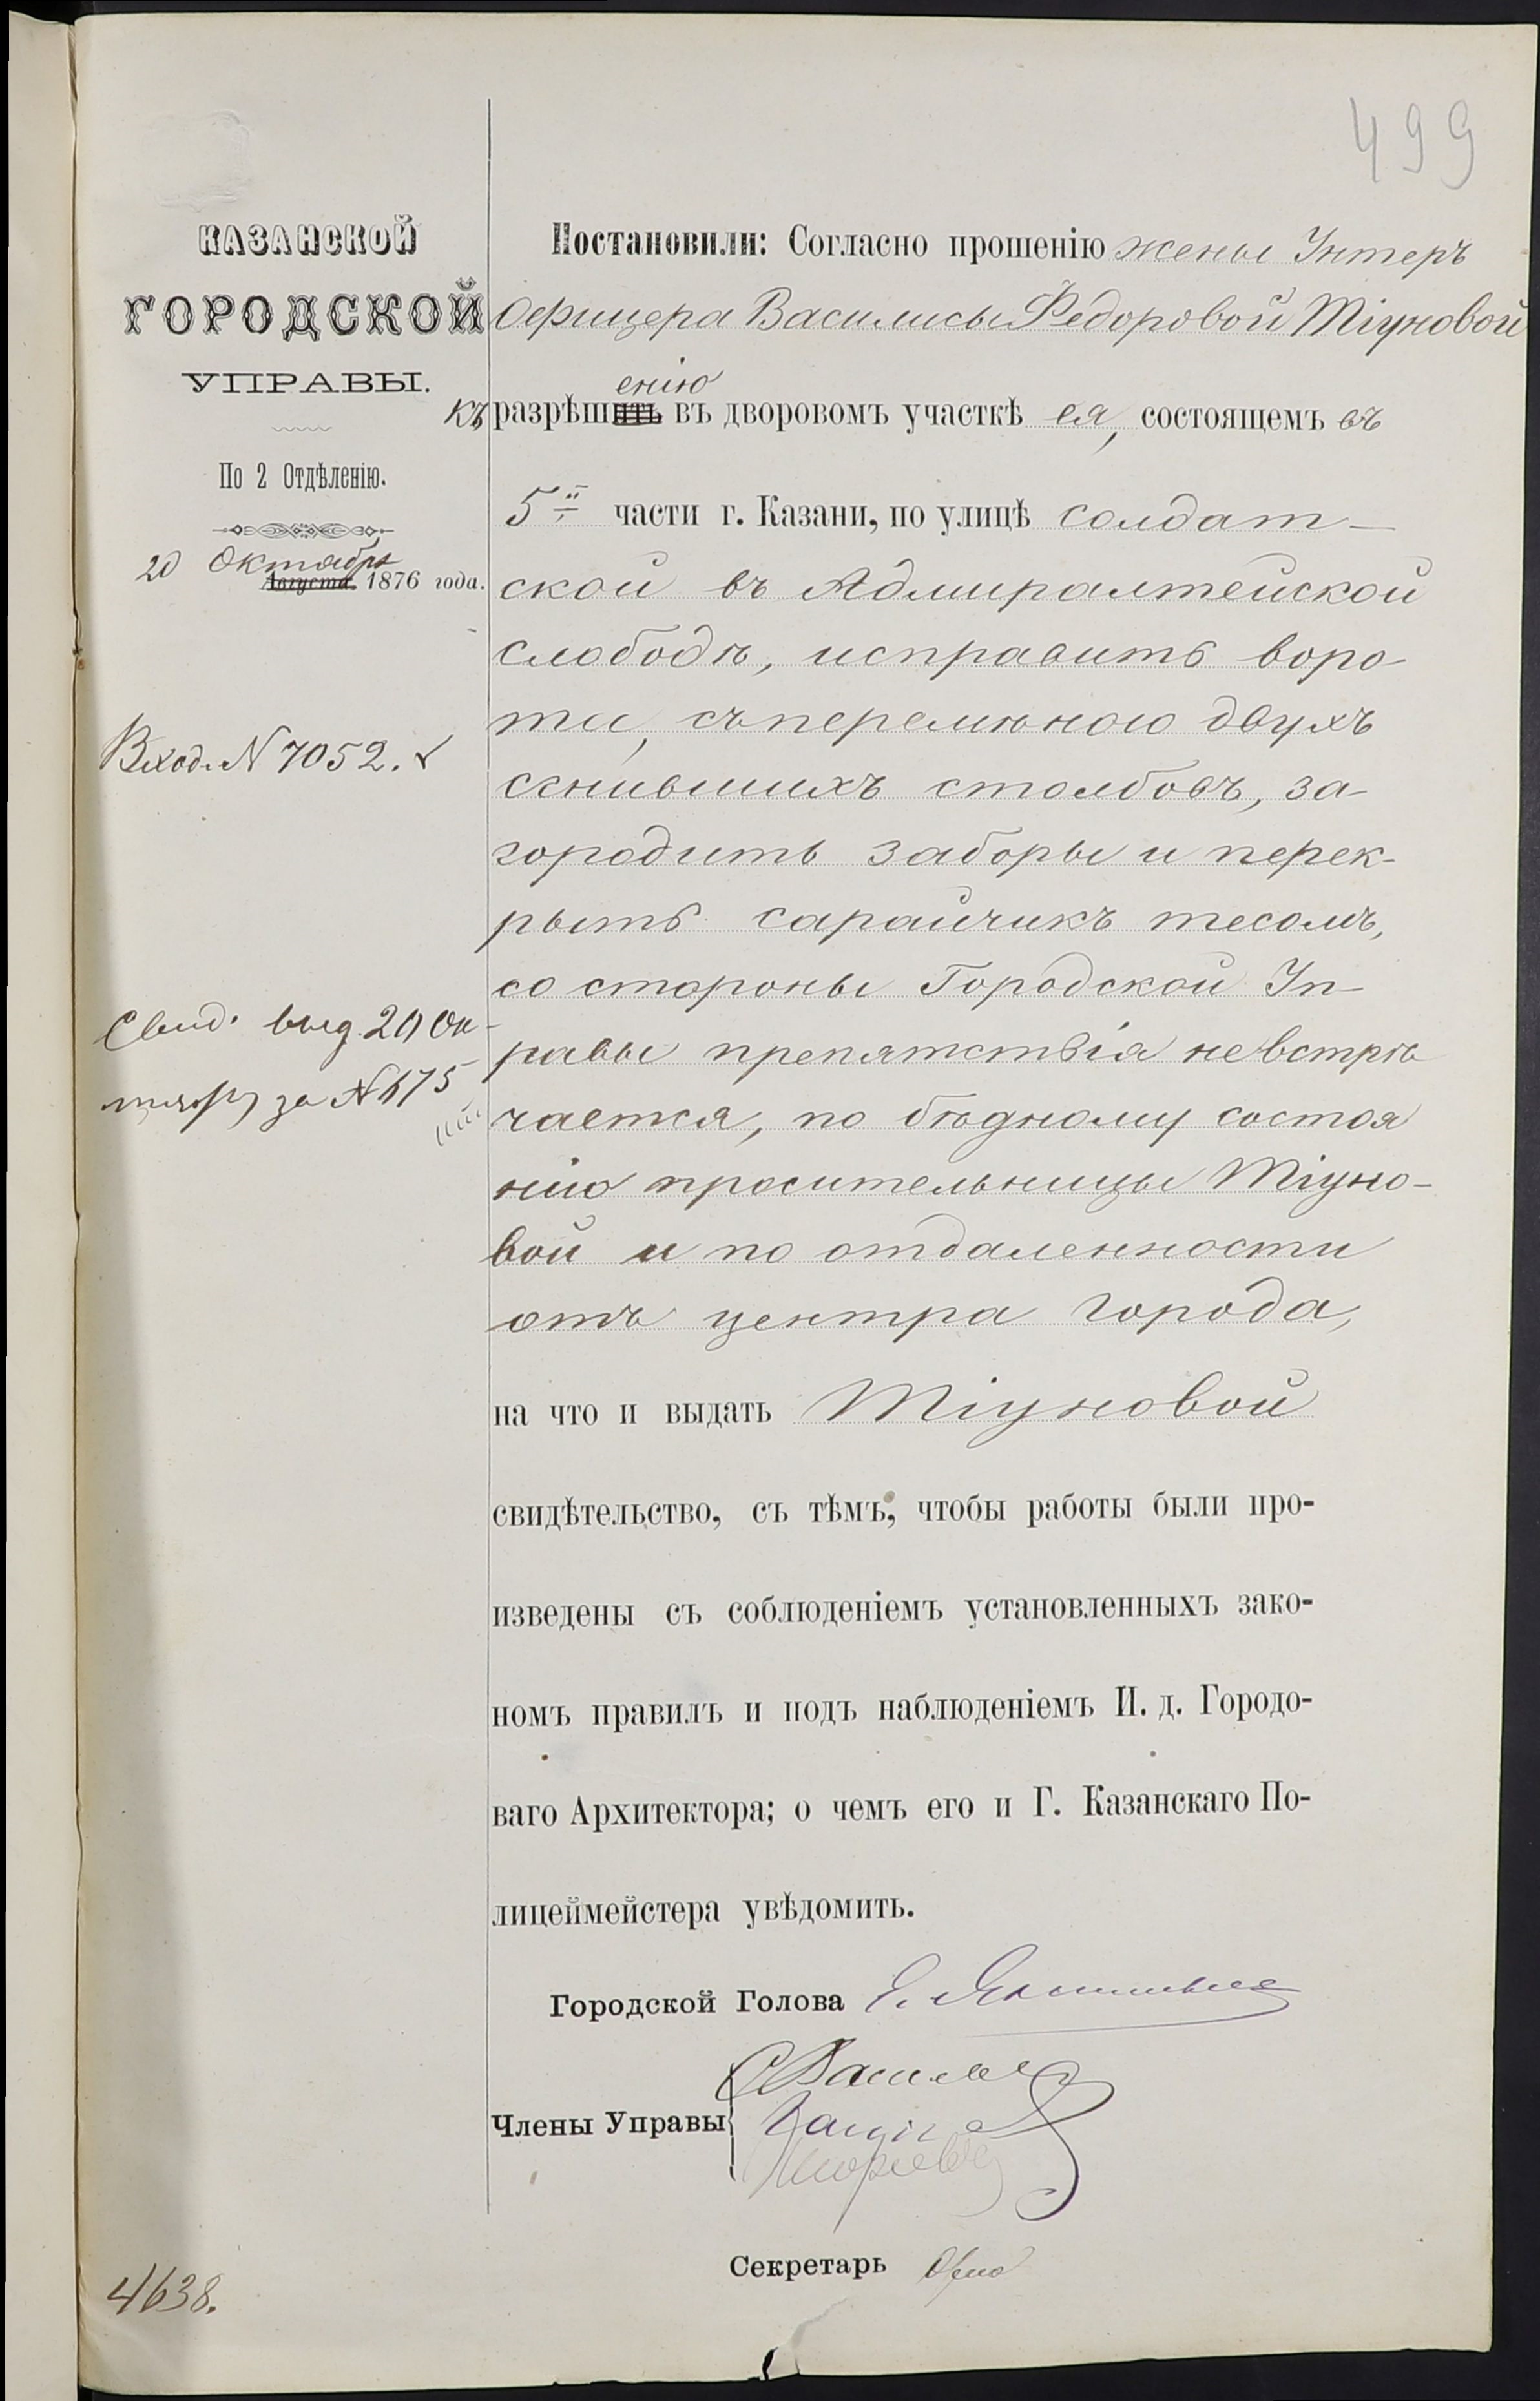 499
КАЗАНСКОЙ
ГОРОДСКОЙ
УПРАВЫ.
По 2 Отдѣленію.
20 Октября
Августа 1876 года.
Вход. N 7052.
Свид. выд. 20 Ок-
тября за N 675
4638.
Постановили: Согласно прошенію жены Унтеръ
Офицера Василисы Федоровой Тіуновой
енію
къ разрѣшить въ дворовомъ участкѣ ея, состоящемъ въ
5й части г. Казани, по улицѣ солдат-
ской въ Адмиралтейской
слободѣ, исправить воро-
ты, съ перемѣною двухъ
сгнившихъ столбовъ, за-
городить заборы и перек-
рыть сарайчикъ тесомъ,
со стороны Городской Уп-
равы препятствія невстрѣ
чается, по бѣдному состоя
нію просительницы Тіуно-
вой и по отдаленности
отъ центра города,
на что и выдать Тіуновой
свидѣтельство, съ тѣмъ, чтобы работы были про-
изведены съ соблюденіемъ установленныхъ зако-
номъ правилъ и подъ наблюденіемъ И. д. Городо-
ваго Архитектора; о чемъ его и Г. Казанскаго По-
лицеймейстера увѣдомить.
Городской Голова
Члены Управы
Секретарь